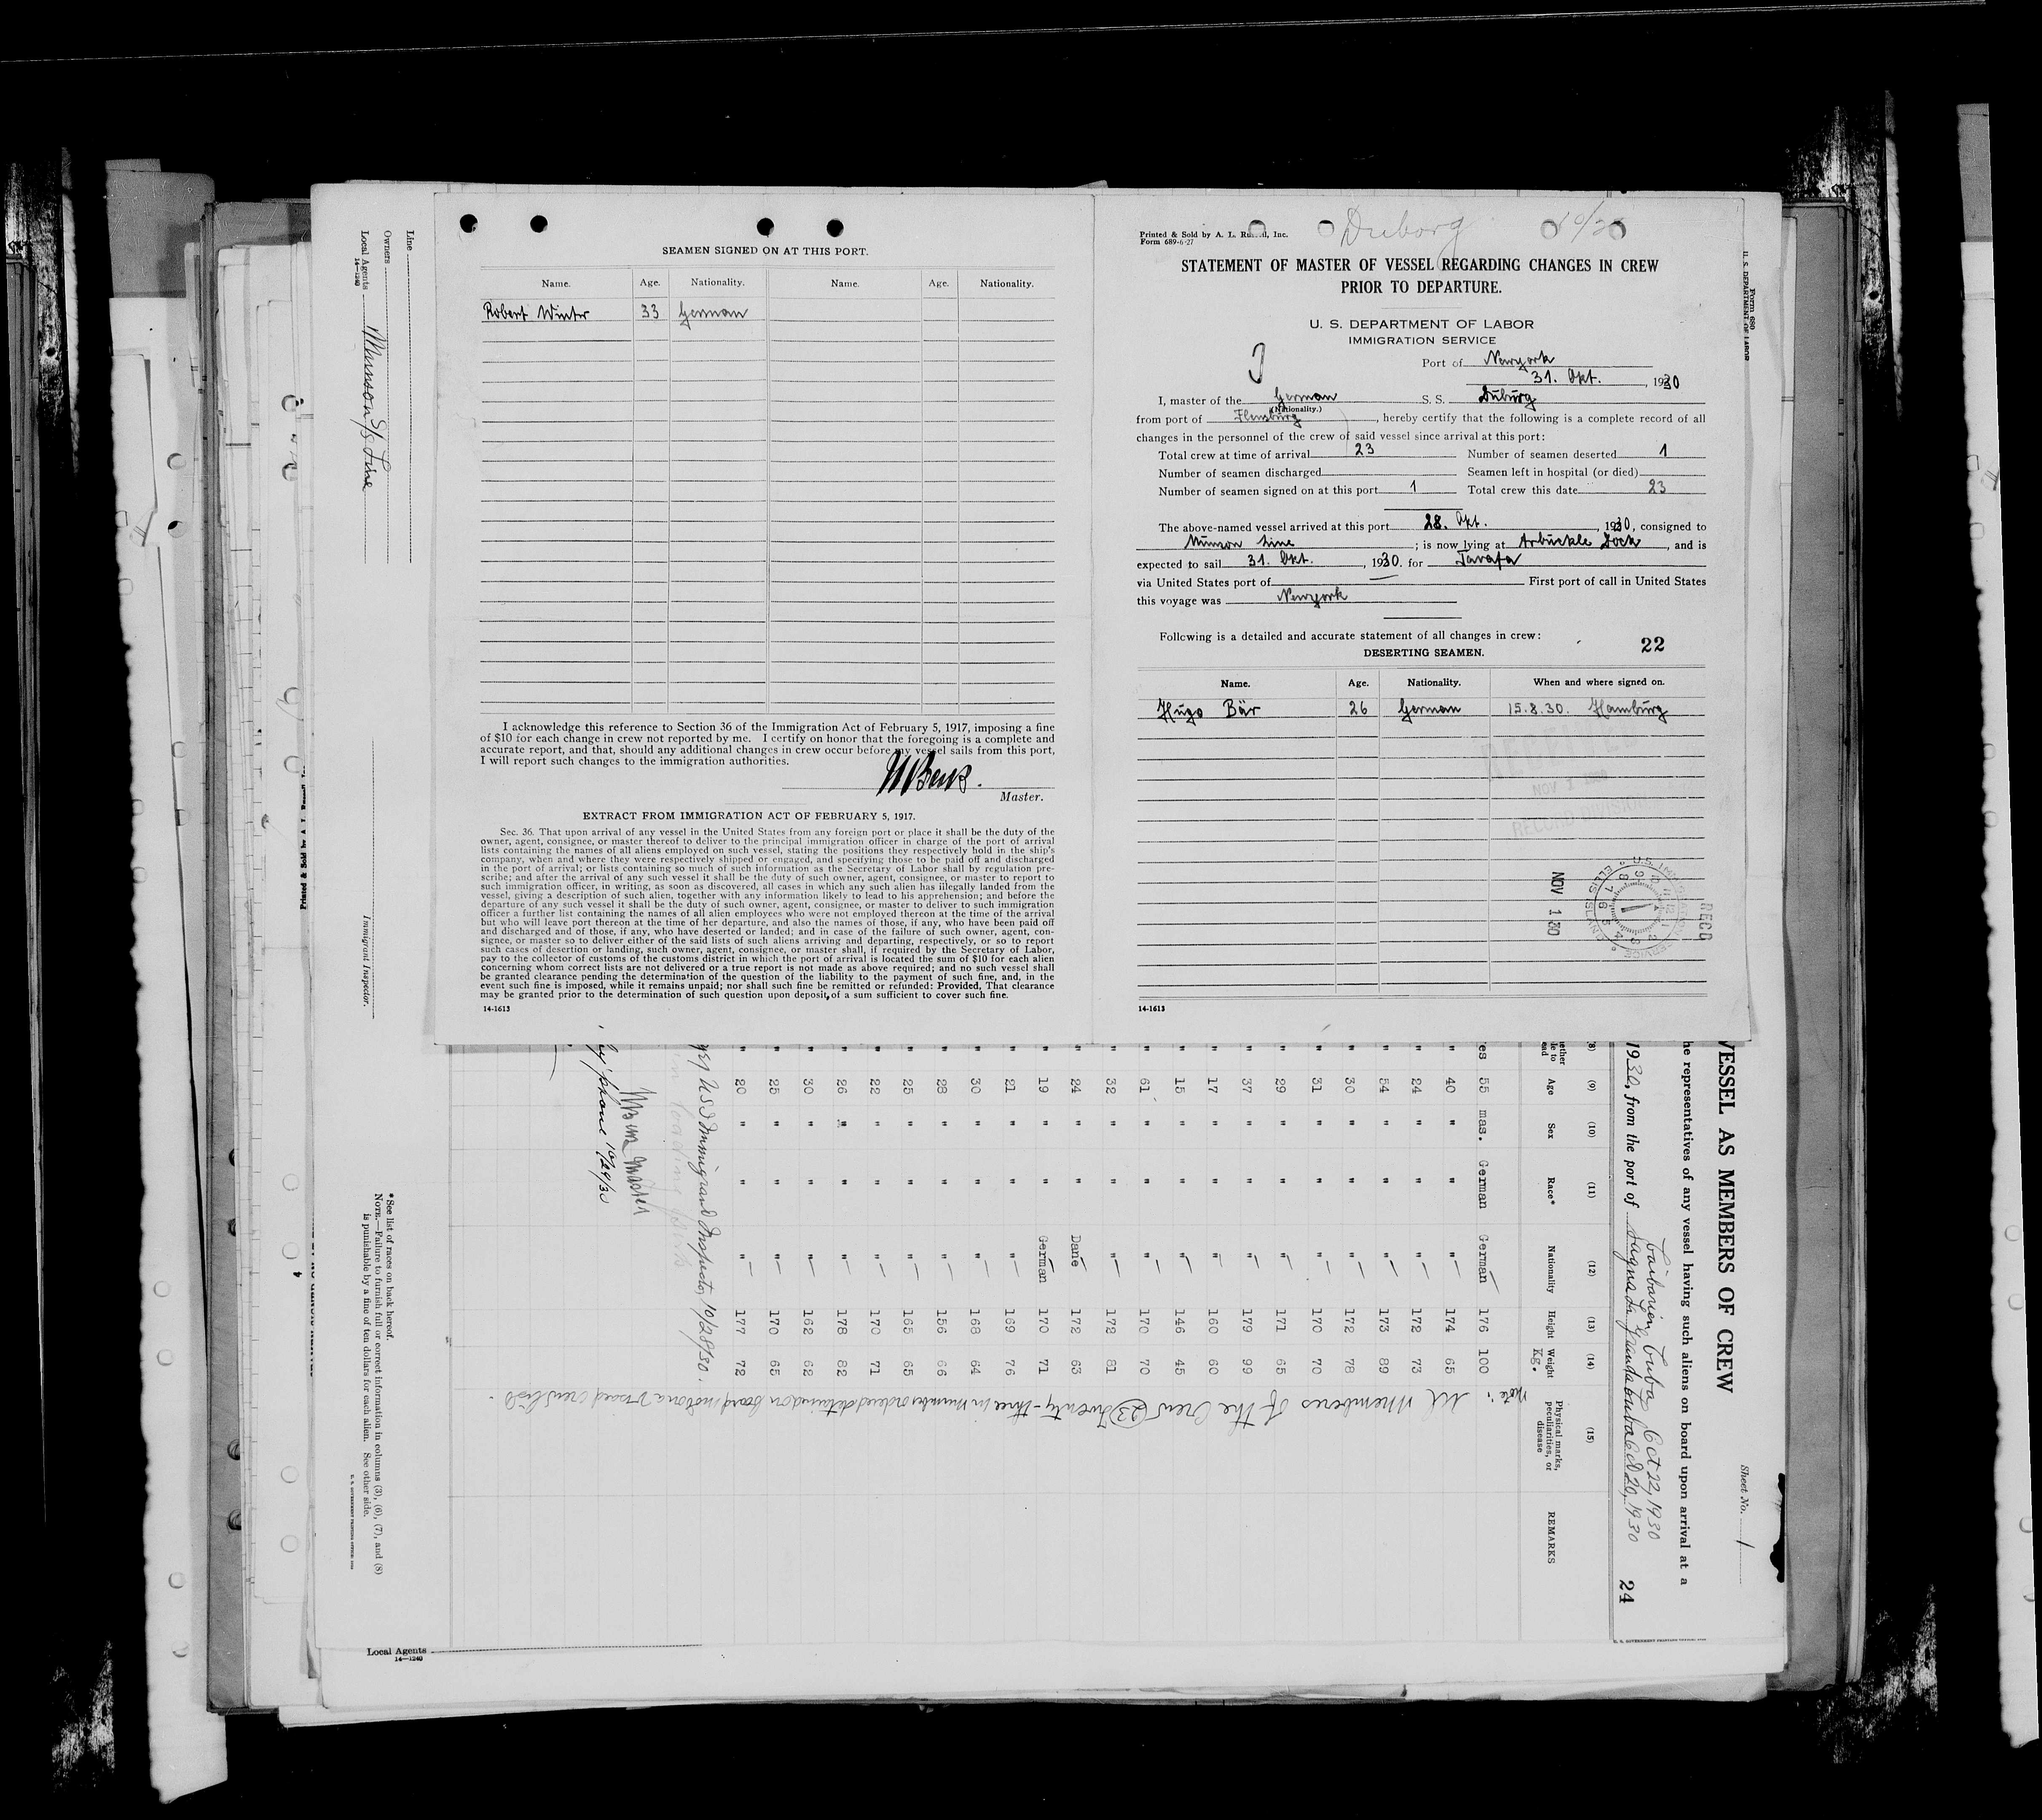 SEAMEN SIGNED ON AT THIS PORT.
Name. Age. Nationality. Name. Age. Nationality.
Robert Winter 33 German
I acknowledge this reference to Section 36 of the Immigration Act of February 5, 1917, imposing a fine
of $10 for each change in crew not reported by me. I certify on honor that the foregoing is a complete and
accurate report, and that, should any additional changes in crew occur before my vessel sails from this port,
I will report such changes to the immigration authorities.
Master.
EXTRACT FROM IMMIGRATION ACT OF FEBRUARY 5, 1917.
Sec. 36. That upon arrival of any vessel in the United States from any foreign port or place it shall be the duty of the
owner, agent, consignee, or master thereof to deliver to the principal immigration officer in charge of the port of arrival
lists containing the names of all aliens employed on such vessel, stating the positions they respectively hold in the ship's
company, when and where they were respectively shipped or engaged, and specifying those to be paid off and discharged
in the port of arrival; or lists containing so much of such information as the Secretary of Labor shall by regulation pre-
scribe; and after the arrival of any such vessel it shall be the duty of such owner, agent, consignee, or master to report to
such immigration officer, in writing, as soon as discovered, all cases in which any such alien has illegally landed from the
vessel, giving a description of such alien, together with any information likely to lead to his apprehension; and before the
departure of any such vessel it shall be the duty of such owner, agent, consignee, or master to deliver to such immigration
officer a further list containing the names of all alien employees who were not employed thereon at the time of the arrival
but who will leave port thereon at the time of her departure, and also the names of those, if any, who have been paid off
and discharged and of those, if any, who have deserted or landed; and in case of the failure of such owner, agent, con-
signee, or master so to deliver either of the said lists of such aliens arriving and departing, respectively, or so to report
such cases of desertion or landing, such owner, agent, consignee, or master shall, if required by the Secretary of Labor,
pay to the collector of customs of the customs district in which the port of arrival is located the sum of $10 for each alien
concerning whom correct lists are not delivered or a true report is not made as above required; and no such vessel shall
be granted clearance pending the determination of the question of the liability to the payment of such fine, and, in the
event such fine is imposed, while it remains unpaid; nor shall such fine be remitted or refunded: Provided, That clearance
may be granted prior to the determination of such question upon deposit of a sum sufficient to cover such fine.
14-1613
Duborg
Printed & Sold by A. L. Russell, Inc.
Form 689-6-27
STATEMENT OF MASTER OF VESSEL REGARDING CHANGES IN CREW
PRIOR TO DEPARTURE.
U. S. DEPARTMENT OF LABOR
IMMIGRATION SERVICE
Port of Newyork
31. Okt., 1930
I, master of the German S. S. Duburg
(Nationality.)
from port of Flensburg, hereby certify that the following is a complete record of all
changes in the personnel of the crew of said vessel since arrival at this port:
Total crew at time of arrival 23 Number of seamen deserted 1
Number of seamen discharged Seamen left in hospital (or died)
Number of seamen signed on at this port 1 Total crew this date 23
The above-named vessel arrived at this port 28. Okt., 1930, consigned to
Munson Line; is now lying at Arbuckle Dock, and is
expected to sail 31. Okt., 1930. for Tarafa
via United States port of — First port of call in United States
this voyage was Newyork
Following is a detailed and accurate statement of all changes in crew:
22
DESERTING SEAMEN.
Name. Age. Nationality. When and where signed on.
Hugo Bär 26 German 15.8.30. Hamburg
NOV 1 30
RECD
14-1613
Form 680
U. S. DEPARTMENT OF LABOR
Line
Owners
Local Agents Munson S/S Line
14-1240
Immigrant Inspector.
* See list of races on back hereof.
NOTE.—Failure to furnish full or correct information in columns (3), (6), (7), and (8)
is punishable by a fine of ten dollars for each alien. See other side.
Local Agents
14-1240
Sheet No. 1
VESSEL AS MEMBERS OF CREW
he representatives of any vessel having such aliens on board upon arrival at a
Caibarien Cuba Oct 22, 1930
1930, from the port of Sagua la Grande Cuba Oct 20, 1930 24
(9) (10) (11) (12) (13) (14) (15)
Age Sex Race* Nationality Height Weight Kg. Physical marks, peculiarities, or disease REMARKS
es 55 mas. German German 176 100
" 40 " " " 174 65
" 24 " " " 172 73
" 54 " " " 173 89
" 30 " " " 172 78
" 31 " " " 170 70
" 29 " " " 171 65
" 37 " " " 179 99
" 17 " " " 160 60
" 15 " " " 146 45
" 61 " " " 170 70
" 32 " " " 172 81
" 24 " " Dane 172 63
" 19 " " German 170 71
" 21 " " " 169 76
" 30 " " " 168 64
" 28 " " " 156 66
" 25 " " " 165 65
" 22 " " " 170 71
" 26 " " " 178 82
" 30 " " " 162 62
" 25 " " " 170 65
" 20 " " " 177 72
Note: All Members of the Crew (23) Twenty-three in number ordered detained on board, not on a visaed crew list.
U S Immigrant Inspector, 10/28/30.
Master
by phone 10/29/30